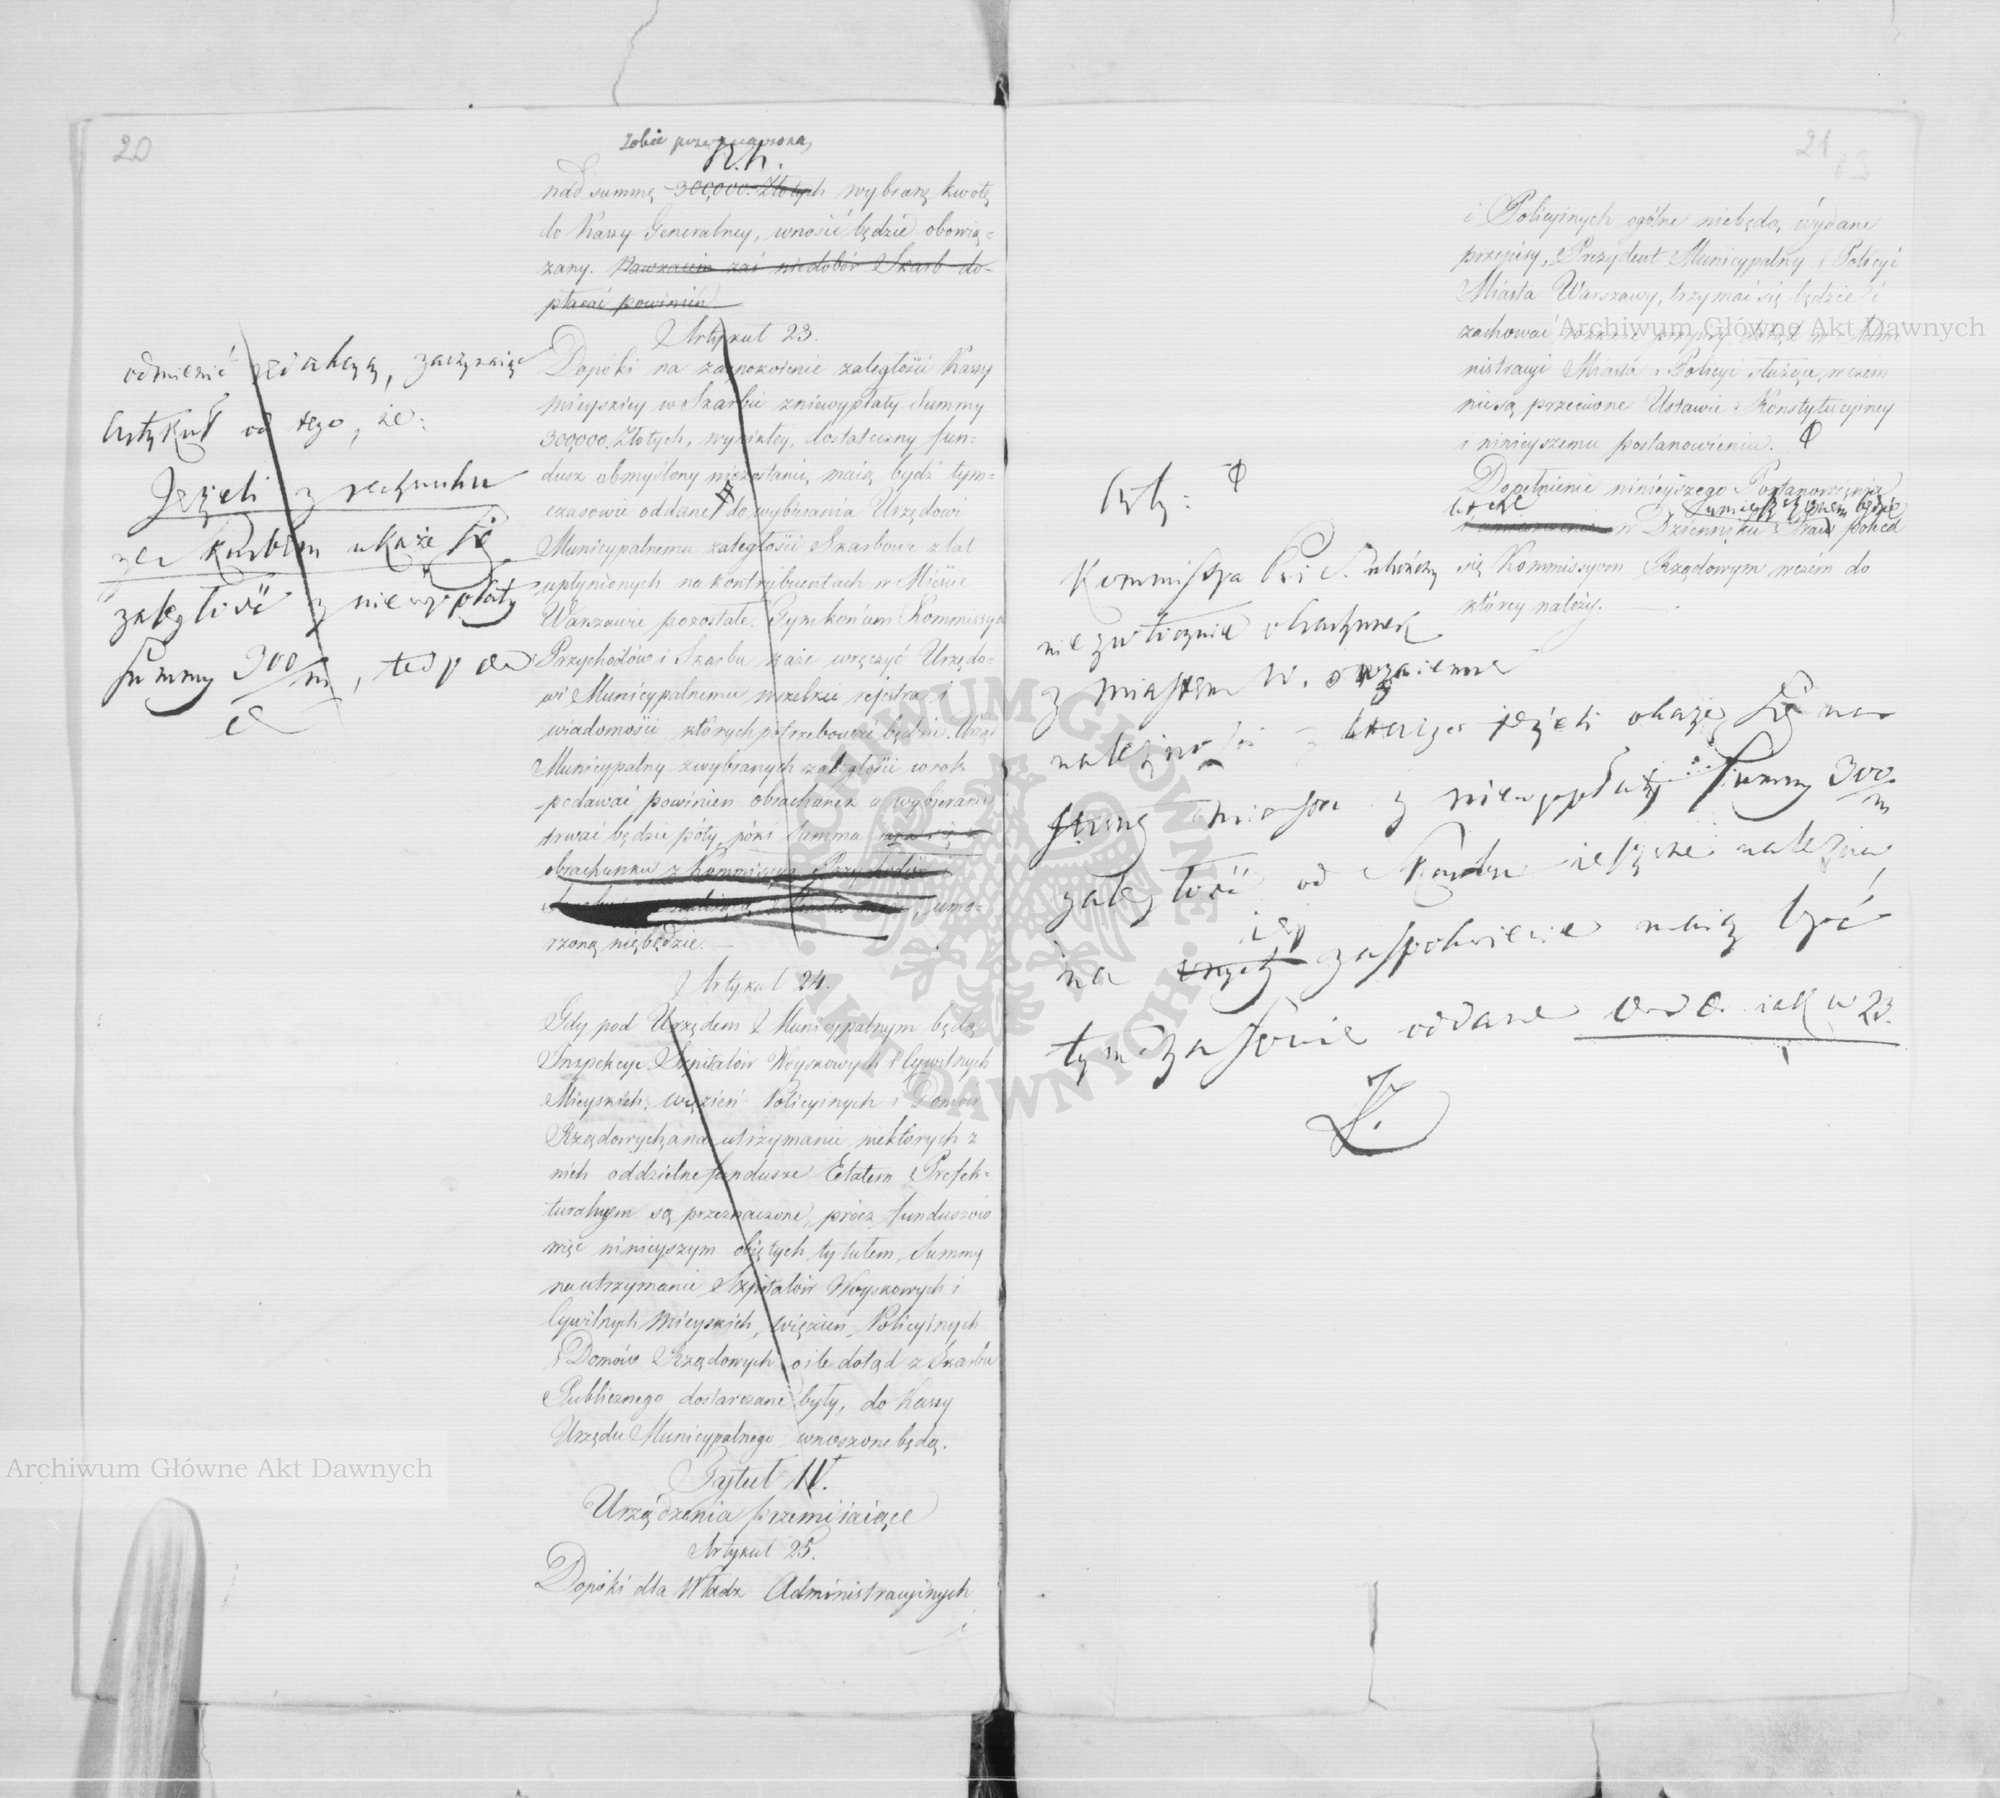 20
sobie przeznaczoną,
nad summę 300,000. Złotych wybraną kwotę
do Kassy Generalney, wnosić będzie obowią-
zany. Nawzaiem zaś niedobór Skarb do-
płacać powinien.
Artykuł 23.
Dopóki na zaspokoienie zaległości Kassy
Mieyskiey w Skarbie z niewypłaty Summy
300,000. Złotych, wynikłey, dostateczny fun-
dusz obmyślony niezostanie, maią bydź tym-
czasowie oddane do wybierania Urzędowi
Municypalnemu zaległości Skarbowe z lat
upłynionych na kontrybuentach w Mieście
Warszawie pozostałe. Tym końcem Kommissya
Przychodów i Skarbu każe wręczyć Urzędo-
wi Municypalnemu wszelkie rejestra i
wiadomości, których potrzebować będzie. Urząd
Municypalny z wybranych zaległości co rok
podawać powinien obrachunek a wybieranie
trwać będzie póty, póki Summa
obrachunku z Kommissyą Przychodów i
umo-
rzoną niebędzie.
odmienić redakcyą, zaczynaiąc
Artykuł od tego, że:
Jeżeli z rachunku
ze Skarbem ukaże się
zaległość z niewypłaty
Summy 300/m, tedy
Artykuł 24.
Gdy pod Urzędem Municypalnym będą
Inspekcye Szpitalów Woyskowych i Cywilnych
Mieyskich, więzień Policyinych i Domów
Rządowych, a na utrzymanie niektórych z
nich oddzielne fundusze Etatem Prefek-
turalnym są przeznaczone, prócz funduszów
więc ninieyszym obiętych tytułem, Summy
na utrzymanie Szpitalów Woyskowych i
Cywilnych Mieyskich, więzień Policyinych
i Domów Rządowych o ile dotąd z Skarbu
Publicznego dostarczane były, do Kassy
Urzędu Municypalnego wnoszone będą.
Tytuł IV.
Urządzenia przemiiaiące
Artykuł 25.
Dopóki dla Władz Administracyinych
i
21
i Policyinych ogólne niebędą wydane
przepisy, Prezydent Municypalny i Policyi
Miasta Warszawy, trzymać się będzie i
zachować każe przepisy dotąd w Admi
nistracyi Miasta i Policyi służące, w czem
niesą przeciwne Ustawie Konstytucyiney
i ninieyszemu postanowieniu.
Dopełnienie ninieyszego Postanowienia
które
w Dzienniku Praw poleca
się Kommissyom Rządowym w czem do
którey należy.
Art:
Kommissya P. i Skarbu
niezwłocznie obrachunek
z miastem W. wzaiemne
należności z którego ieżeli okaże się na
stronę Miasta z niewypłaty Summy 300/m
zaległość od Skarbu ieszcze należna
na iey zaspokoienie maią być
tymczasowie oddane iak w 23.
Archiwum Główne Akt Dawnych
Archiwum Główne Akt Dawnych
ARCHIWUM GŁÓWNE AKT DAWNYCH